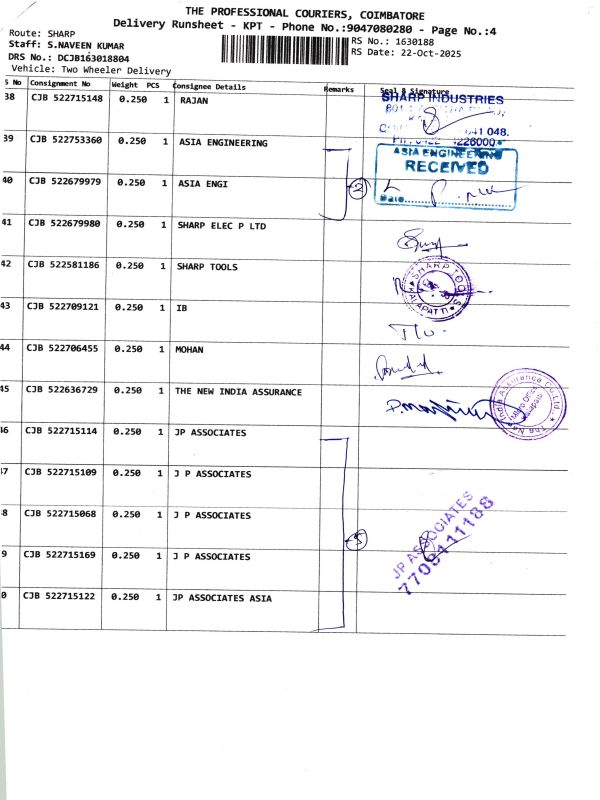 THE PROFESSIONAL COURIERS, COIMBATORE
Delivery Runsheet - KPT - Phone No.:9047080280 - Page No.:4
Route: SHARP
Staff: S.NAVEEN KUMAR
RS No.: 1630188
DRS No.: DCJB163018804
RS Date: 22-Oct-2025
Vehicle: Two Wheeler Delivery
S No Consignment No Weight PCS Consignee Details Remarks Seal & Signature
38 CJB 522715148 0.250 1 RAJAN
SHARP INDUSTRIES
041 048.
226000
39 CJB 522753360 0.250 1 ASIA ENGINEERING
ASIA ENGINEERING
RECEIVED
40 CJB 522679979 0.250 1 ASIA ENGI
2
Date
41 CJB 522679980 0.250 1 SHARP ELEC P LTD
42 CJB 522581186 0.250 1 SHARP TOOLS
SHARP TOOLS
KALAPATTI
43 CJB 522709121 0.250 1 IB
44 CJB 522706455 0.250 1 MOHAN
45 CJB 522636729 0.250 1 THE NEW INDIA ASSURANCE
The New India Assurance Co. Ltd.
46 CJB 522715114 0.250 1 JP ASSOCIATES
47 CJB 522715109 0.250 1 J P ASSOCIATES
48 CJB 522715068 0.250 1 J P ASSOCIATES
5
JP ASSOCIATES
7709111188
9 CJB 522715169 0.250 1 J P ASSOCIATES
0 CJB 522715122 0.250 1 JP ASSOCIATES ASIA